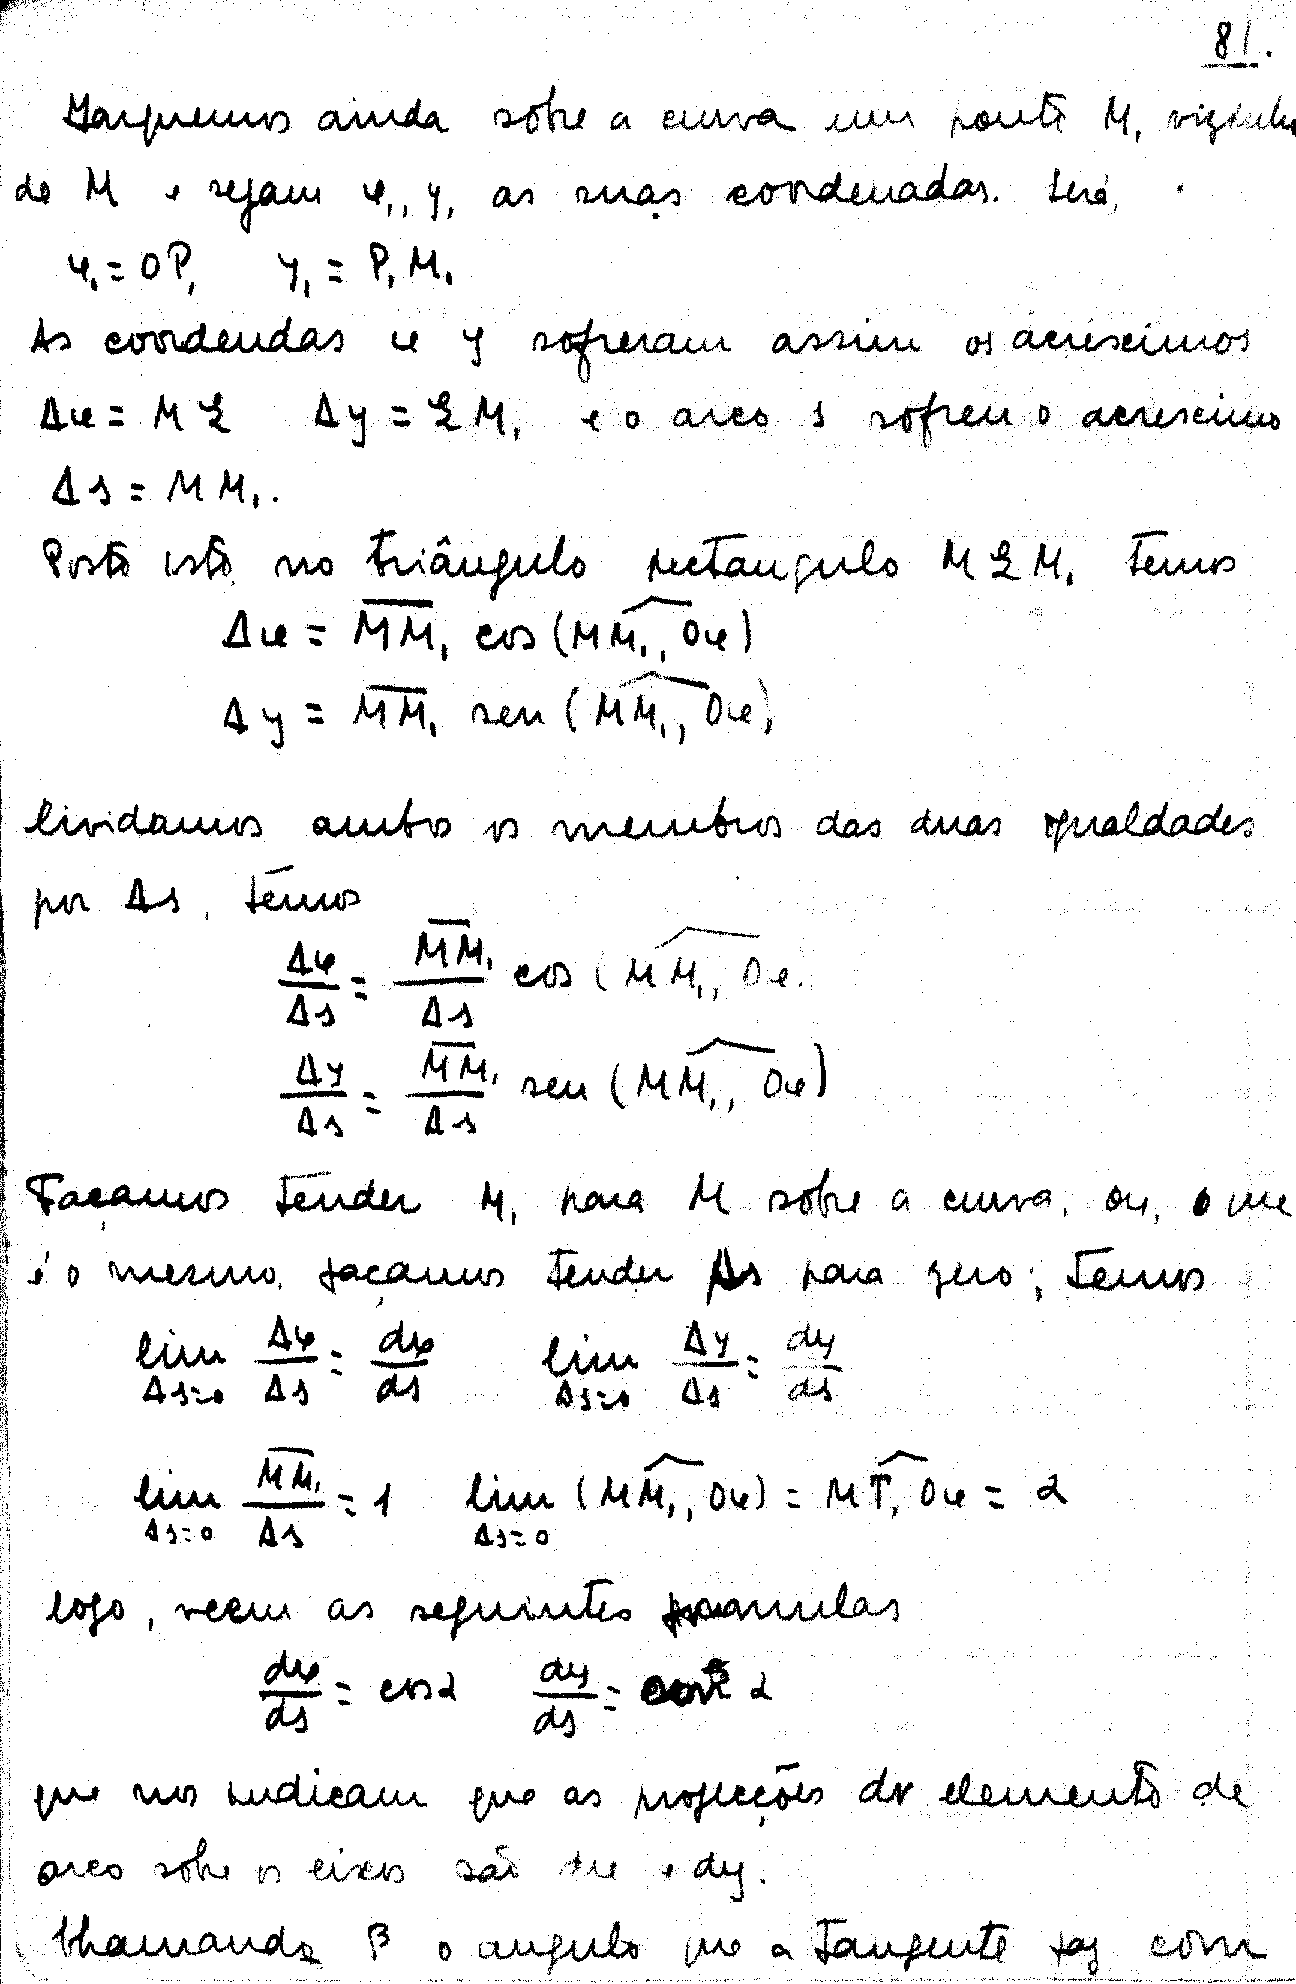 81.
Marquemos ainda sôbre a curva um ponto M₁ vizinho
de M e sejam x₁, y₁ as suas coordenadas. Será,
x₁ = OP₁ y₁ = P₁M₁
As coordendas x y sofreram assim os acrescimos
Δx = MQ Δy = QM₁ e o arco s sofreu o acrescimo
Δs = MM₁.
Posto isto, no triângulo rectangulo MQM₁ temos
Δx = \overline{MM₁} cos (\widehat{MM₁, Ox})
Δy = \overline{MM₁} sen (\widehat{MM₁, Ox})
Dividamos ambos os membros das duas igualdades
por Δs, têmos
Δx/Δs = \overline{MM₁}/Δs cos (\widehat{MM₁, Ox}
Δy/Δs = \overline{MM₁}/Δs sen (\widehat{MM₁, Ox})
Façamos tender M₁ para M sôbre a curva, ou, o que
é o mesmo, façamos tender Δs para zero; temos
lim_{Δs=0} Δx/Δs = dx/ds lim_{Δs=0} Δy/Δs = dy/ds
lim_{Δs=0} \overline{MM₁}/Δs = 1 lim_{Δs=0} (\widehat{MM₁, Ox}) = \widehat{MT, Ox} = α
logo, veem as seguintes formulas
dx/ds = cos α dy/ds = sen α
que nos indicam que as projecções do elemento de
arco sôbre os eixos são dx e dy.
Chamando β o angulo que a tangente faz com